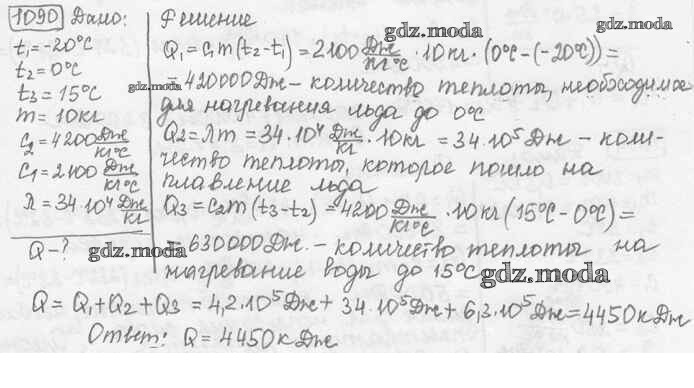 1090 Дано:
t₁=-20°C
t₂=0°C
t₃=15°C
m=10кг
c₂=4200 Дж/кг°C
c₁=2100 Дж/кг°C
λ=34·10⁴ Дж/кг
Q-?
Решение
Q₁=c₁m(t₂-t₁)=2100 Дж/кг°C ·10кг·(0°C-(-20°C))=
=420000Дж-количество теплоты, необходимое
для нагревания льда до 0°C
Q₂=λm=34·10⁴ Дж/кг ·10кг=34·10⁵Дж-коли-
чество теплоты, которое пошло на
плавление льда
Q₃=c₂m(t₃-t₂)=4200 Дж/кг°C ·10кг(15°C-0°C)=
=630000Дж.-количество теплоты на
нагревание воды до 15°C
Q=Q₁+Q₂+Q₃=4,2·10⁵Дж+34·10⁵Дж+6,3·10⁵Дж=4450кДж
Ответ: Q=4450кДж
gdz.moda
gdz.moda
gdz.moda
gdz.moda
gdz.moda